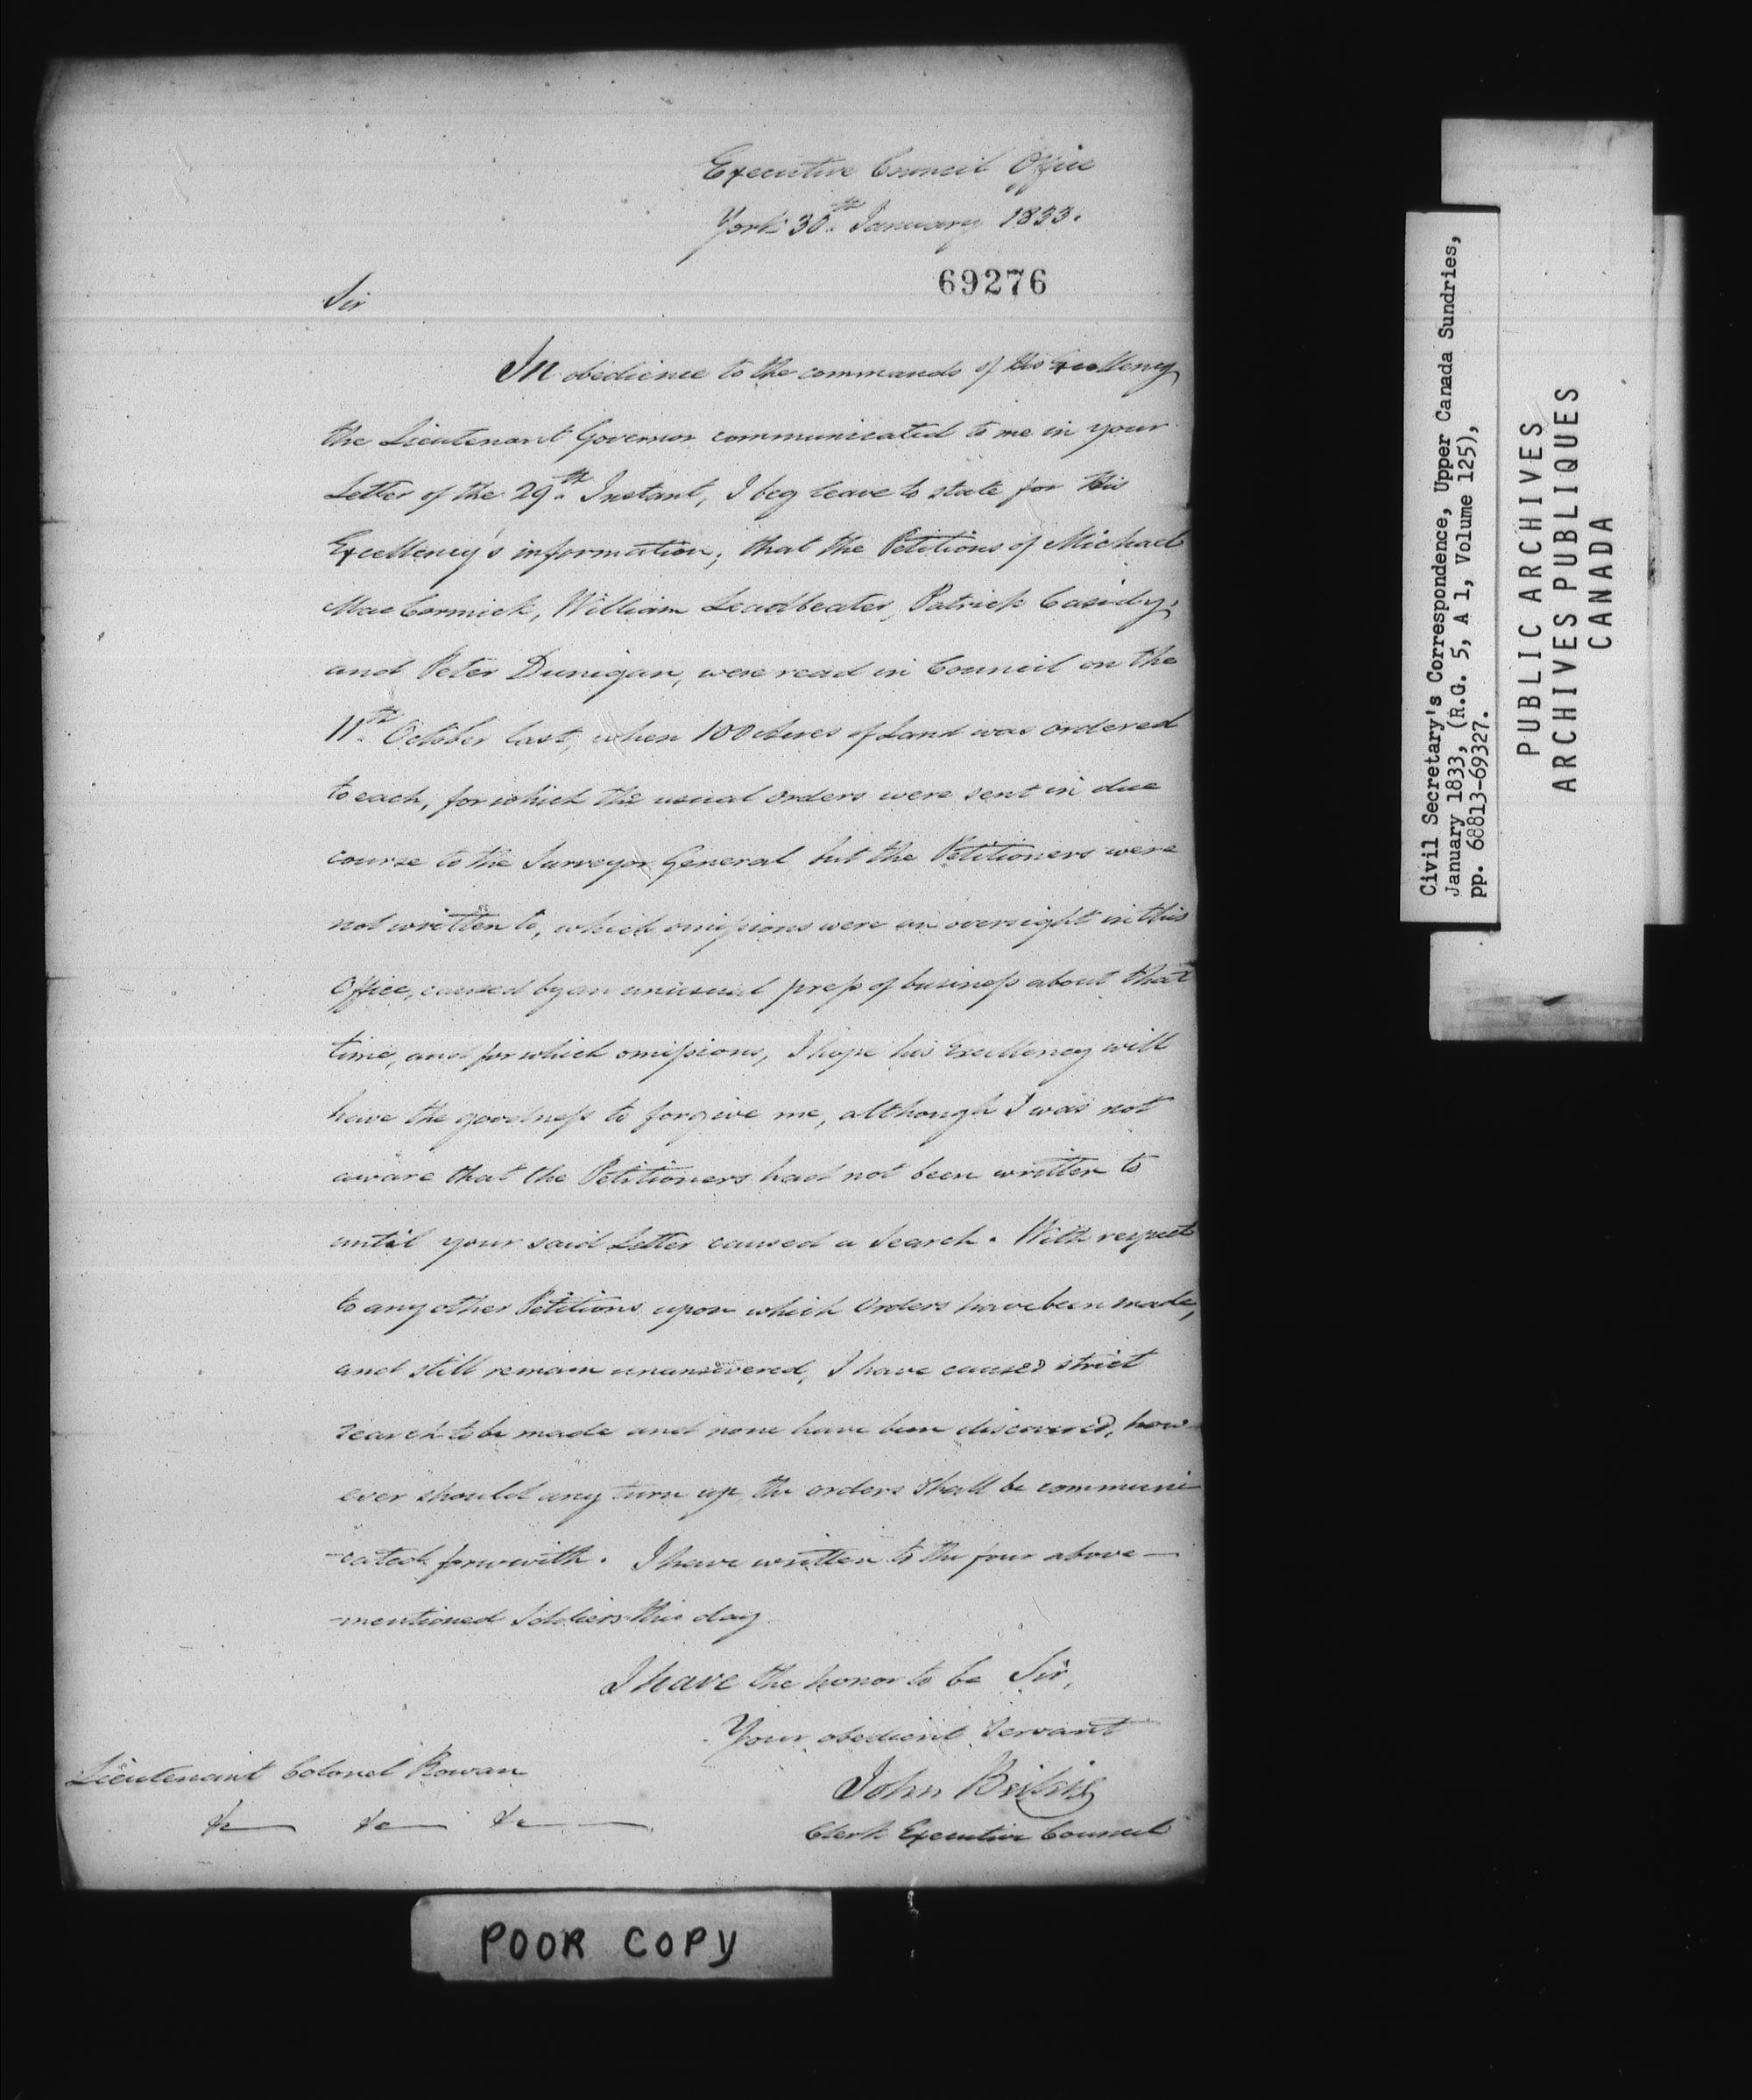 Executive Council Office
York 30th. January 1833.
69276
Sir
In obedience to the commands of His Excellency
the Lieutenant Governor communicated to me in your
Letter of the 29th. Instant, I beg leave to state for His
Excellency's information, that the Petitions of Michael
MacCormick, William Leadbeater, Patrick Casidy,
and Peter Dunigan, were read in Council on the
11th. October last, when 100 Acres of Land was ordered
to each, for which the usual orders were sent in due
course to the Surveyor General but the Petitioners were
not written to, which omissions were an oversight in this
Office, caused by an unusual press of business about that
time, and for which omissions, I hope his Excellency will
have the goodness to forgive me, although I was not
aware that the Petitioners had not been written to
until your said Letter caused a search. With respect
to any other Petitions upon which Orders have been made,
and still remain unanswered, I have caused strict
search to be made and none have been discovered, how-
ever should any turn up, the orders shall be communi-
-cated forwith. I have written to the four above—
-mentioned Soldiers this day.
I have the honor to be Sir,
Your obedient Servant
John Beikie
Clerk Executive Council
Lieutenant Colonel Rowan
&c &c &c
POOR COPY
Civil Secretary's Correspondence, Upper Canada Sundries,
January 1833, (R.G. 5, A 1, Volume 125),
pp. 68813-69327.
PUBLIC ARCHIVES
ARCHIVES PUBLIQUES
CANADA